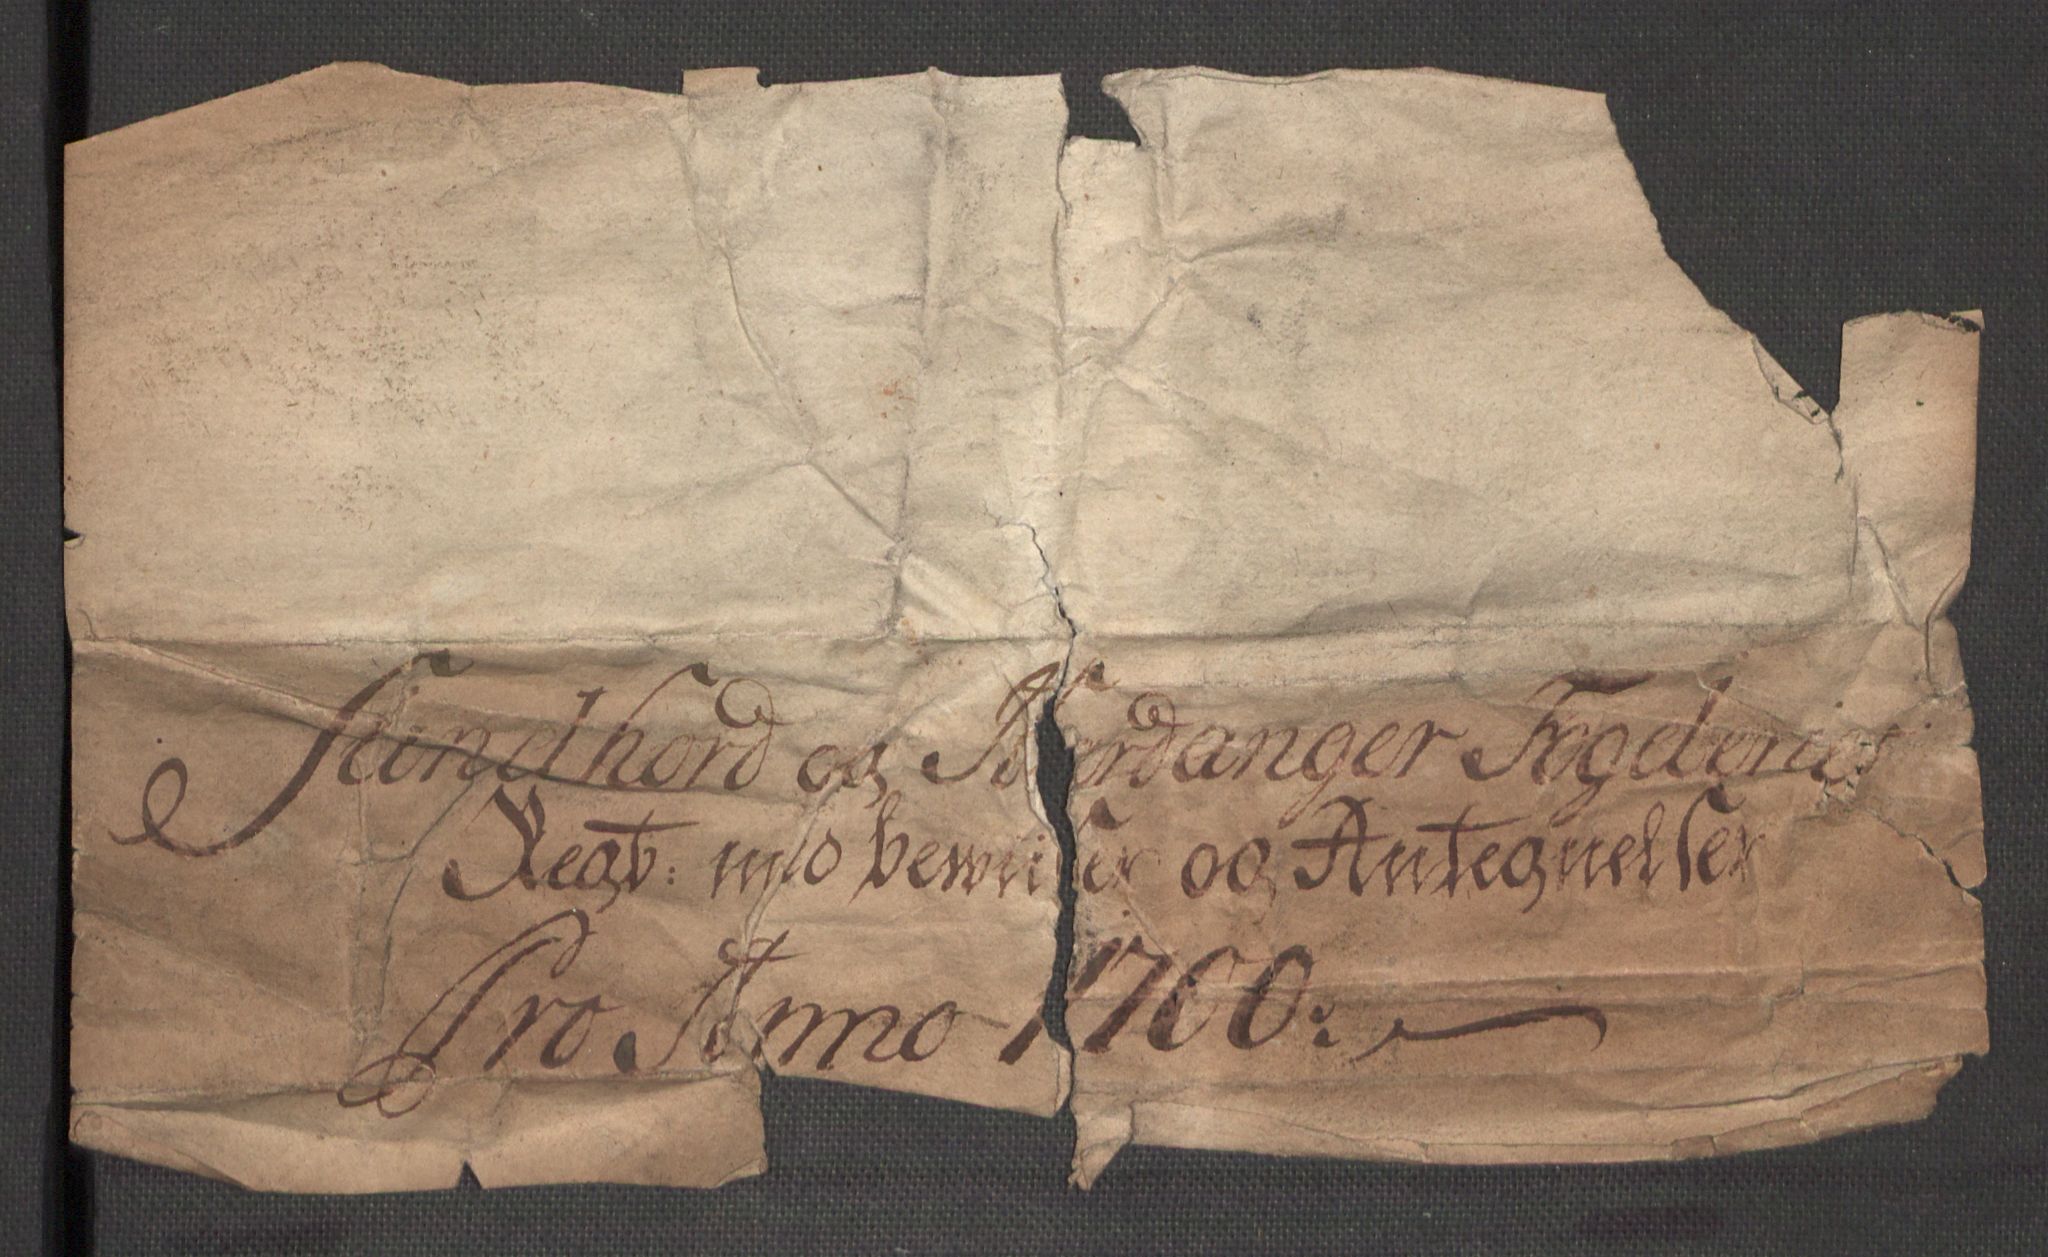 Sundhord og Hardanger Fogderiers
Regb: med bewiiser og Antegnelser
Pro Anno 1700: